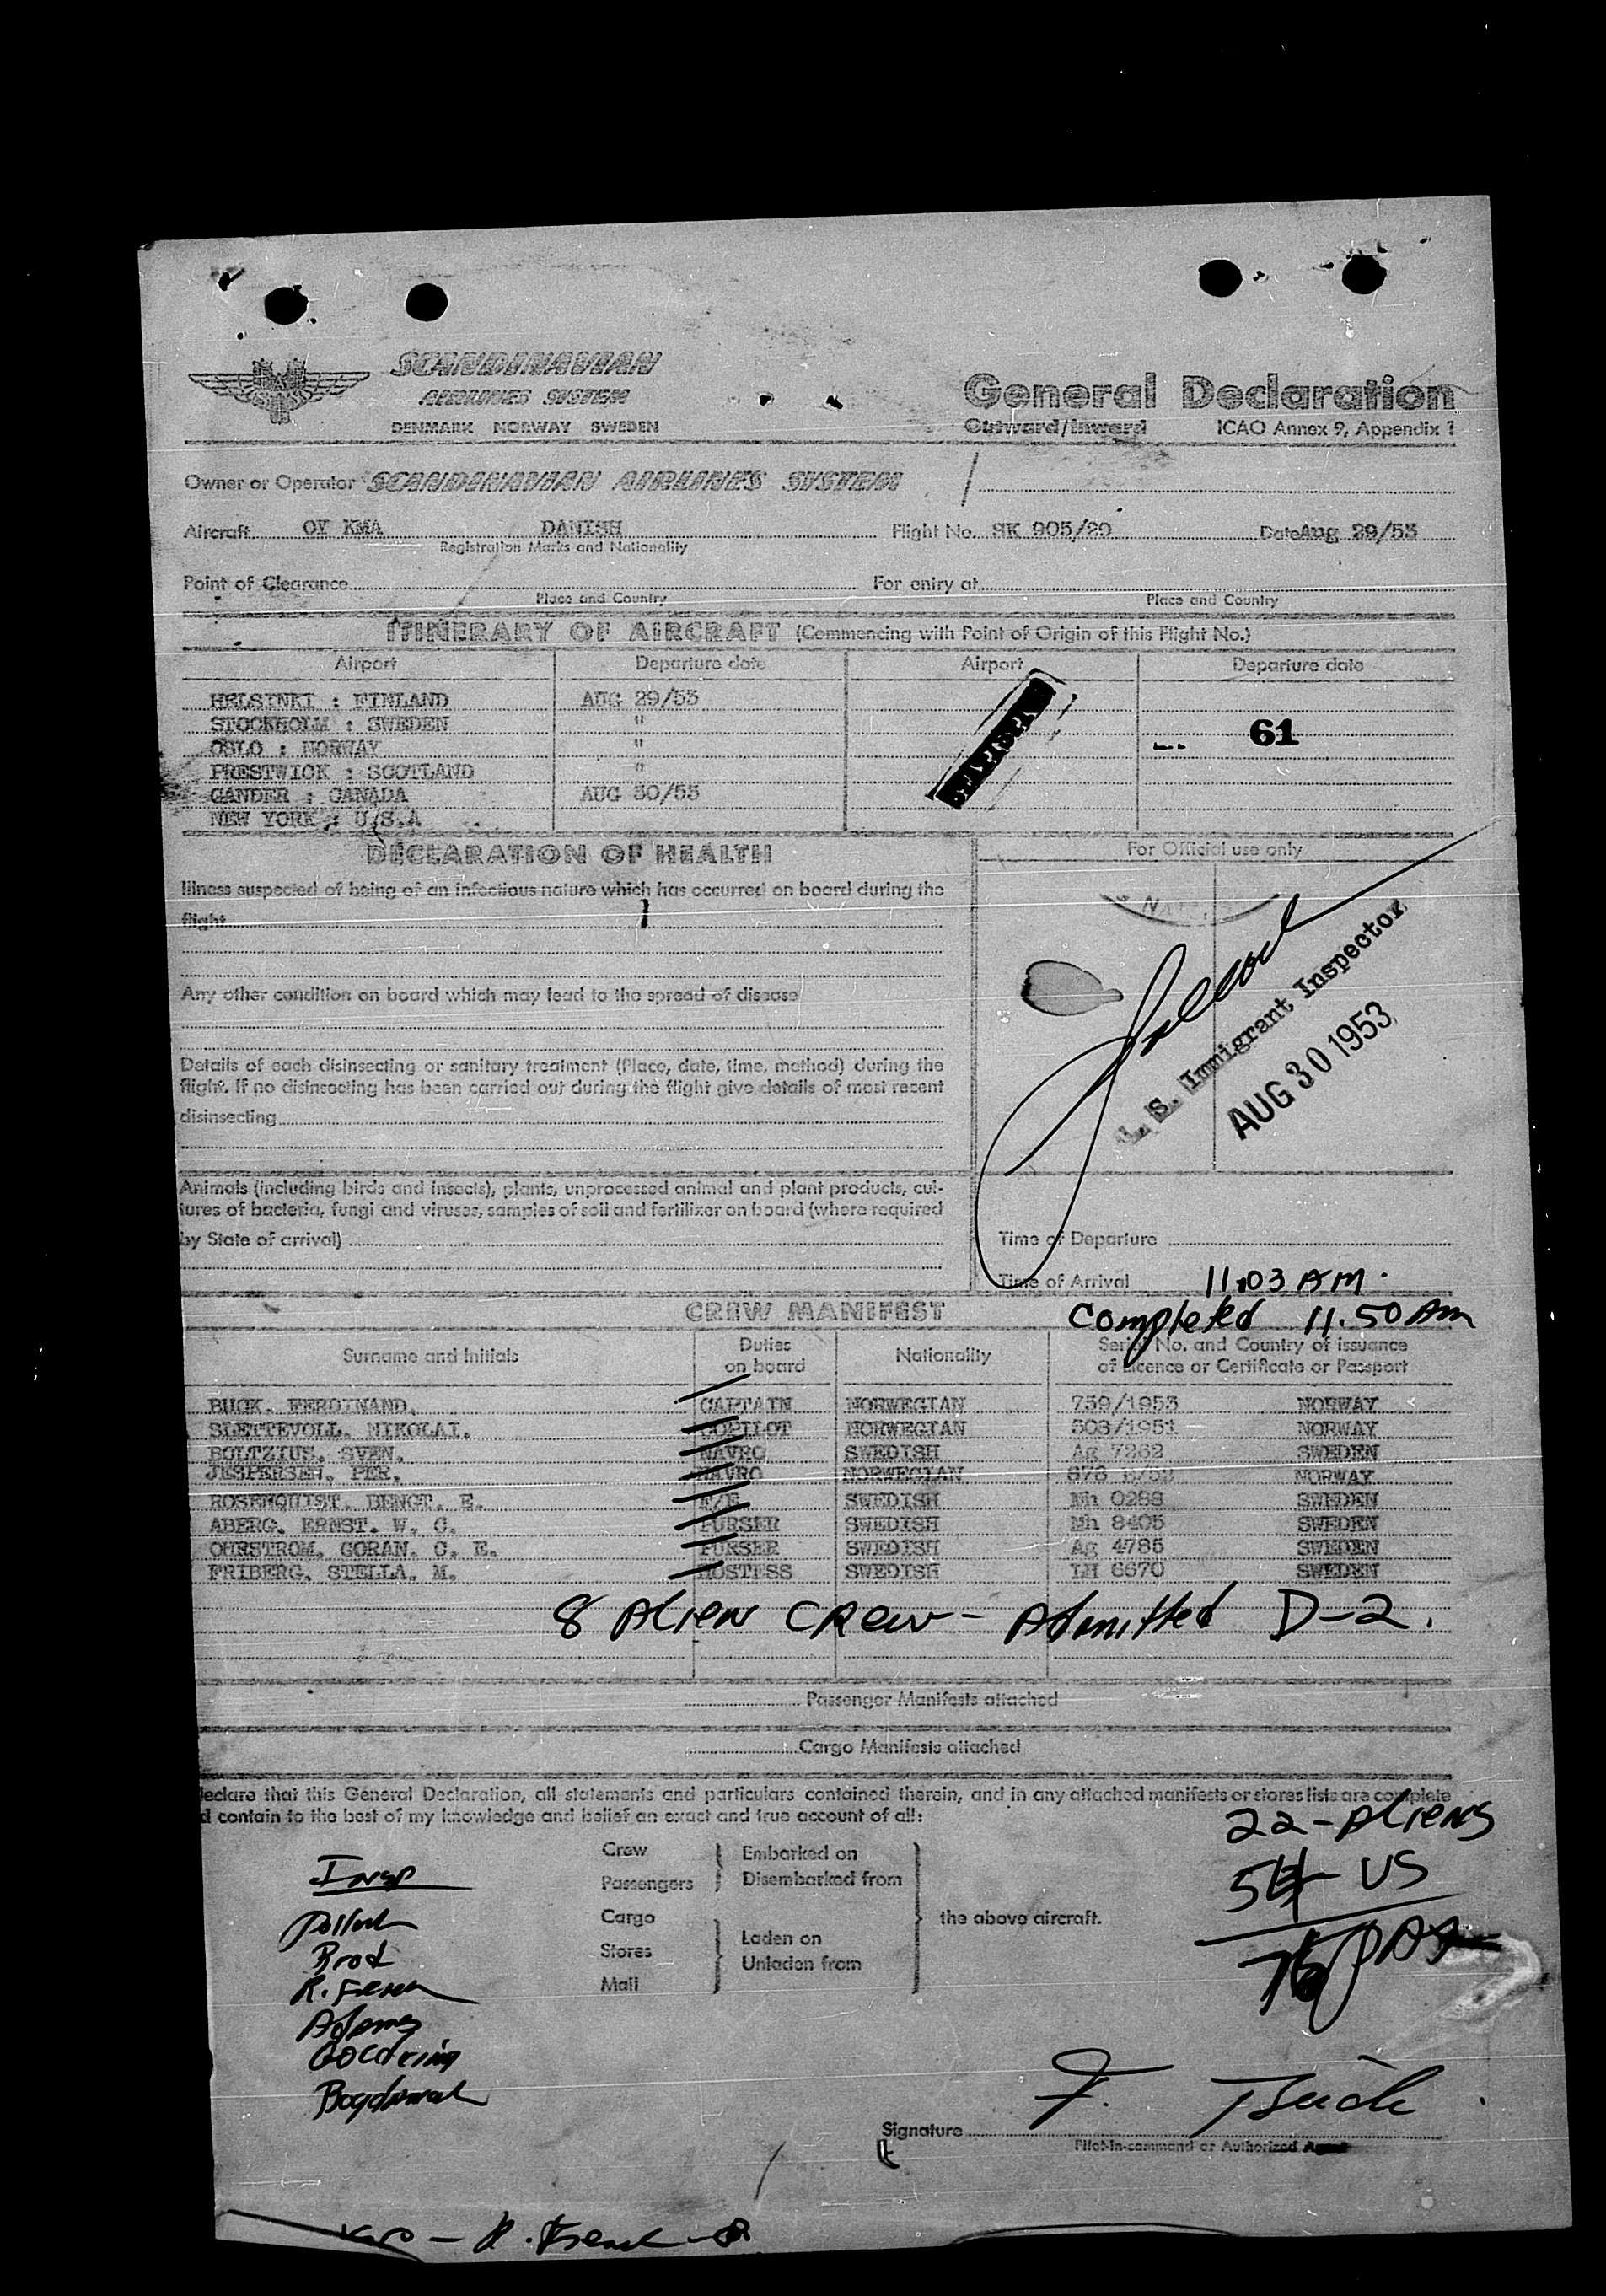 SCANDINAVIAN
AIRLINES SYSTEM
DENMARK NORWAY SWEDEN
General Declaration
Outward/Inward ICAO Annex 9, Appendix 1
Owner or Operator SCANDINAVIAN AIRLINES SYSTEM
Aircraft OY KMA DANISH Flight No. SK 905/29 Date Aug 29/53
Registration Marks and Nationality
Point of Clearance For entry at
Place and Country Place and Country
ITINERARY OF AIRCRAFT (Commencing with Point of Origin of this Flight No.)
Airport Departure date Airport Departure date
HELSINKI : FINLAND AUG 29/53
STOCKHOLM : SWEDEN "
OSLO : NORWAY "
PRESTWICK : SCOTLAND "
GANDER : CANADA AUG 30/53
NEW YORK : U.S.A
61
DECLARATION OF HEALTH
For Official use only
Illness suspected of being of an infectious nature which has occurred on board during the
flight
Any other condition on board which may lead to the spread of disease
Details of each disinsecting or sanitary treatment (Place, date, time, method) during the
flight. If no disinsecting has been carried out during the flight give details of most recent
disinsecting
S. Immigrant Inspector
AUG 30 1953
Animals (including birds and insects), plants, unprocessed animal and plant products, cul-
tures of bacteria, fungi and viruses, samples of soil and fertilizer on board (where required
by State of arrival)
Time of Departure
Time of Arrival 11:03 AM.
Completed 11.50 AM
CREW MANIFEST
Surname and Initials Duties on board Nationality Serial No. and Country of issuance of Licence or Certificate or Passport
BUCK. FERDINAND. CAPTAIN NORWEGIAN 759/1953 NORWAY
SLETTEVOLL. NIKOLAI. COPILOT NORWEGIAN 503/1951 NORWAY
BOLTZIUS. SVEN. NAVRO SWEDISH Ag 7262 SWEDEN
JESPERSEN. PER. NAVRO NORWEGIAN NORWAY
ROSENQUIST. BENGT. E. F/E SWEDISH Mh 0288 SWEDEN
ABERG. ERNST. W. C. PURSER SWEDISH Mh 8405 SWEDEN
OHRSTROM. GORAN. O. E. PURSER SWEDISH Ag 4785 SWEDEN
FRIBERG. STELLA. M. HOSTESS SWEDISH LH 6670 SWEDEN
8 Alien Crew - Admitted D-2.
Passenger Manifests attached
Cargo Manifests attached
declare that this General Declaration, all statements and particulars contained therein, and in any attached manifests or stores lists are complete
d contain to the best of my knowledge and belief an exact and true account of all:
22-Aliens
US
76
Crew
Passengers
Embarked on
Disembarked from
Cargo
Stores
Mail
Laden on
Unladen from
the above aircraft.
Insp
Pollock
Brod
R. French
Adams
Signature F. Buck
Pilot-in-command or Authorized Agent